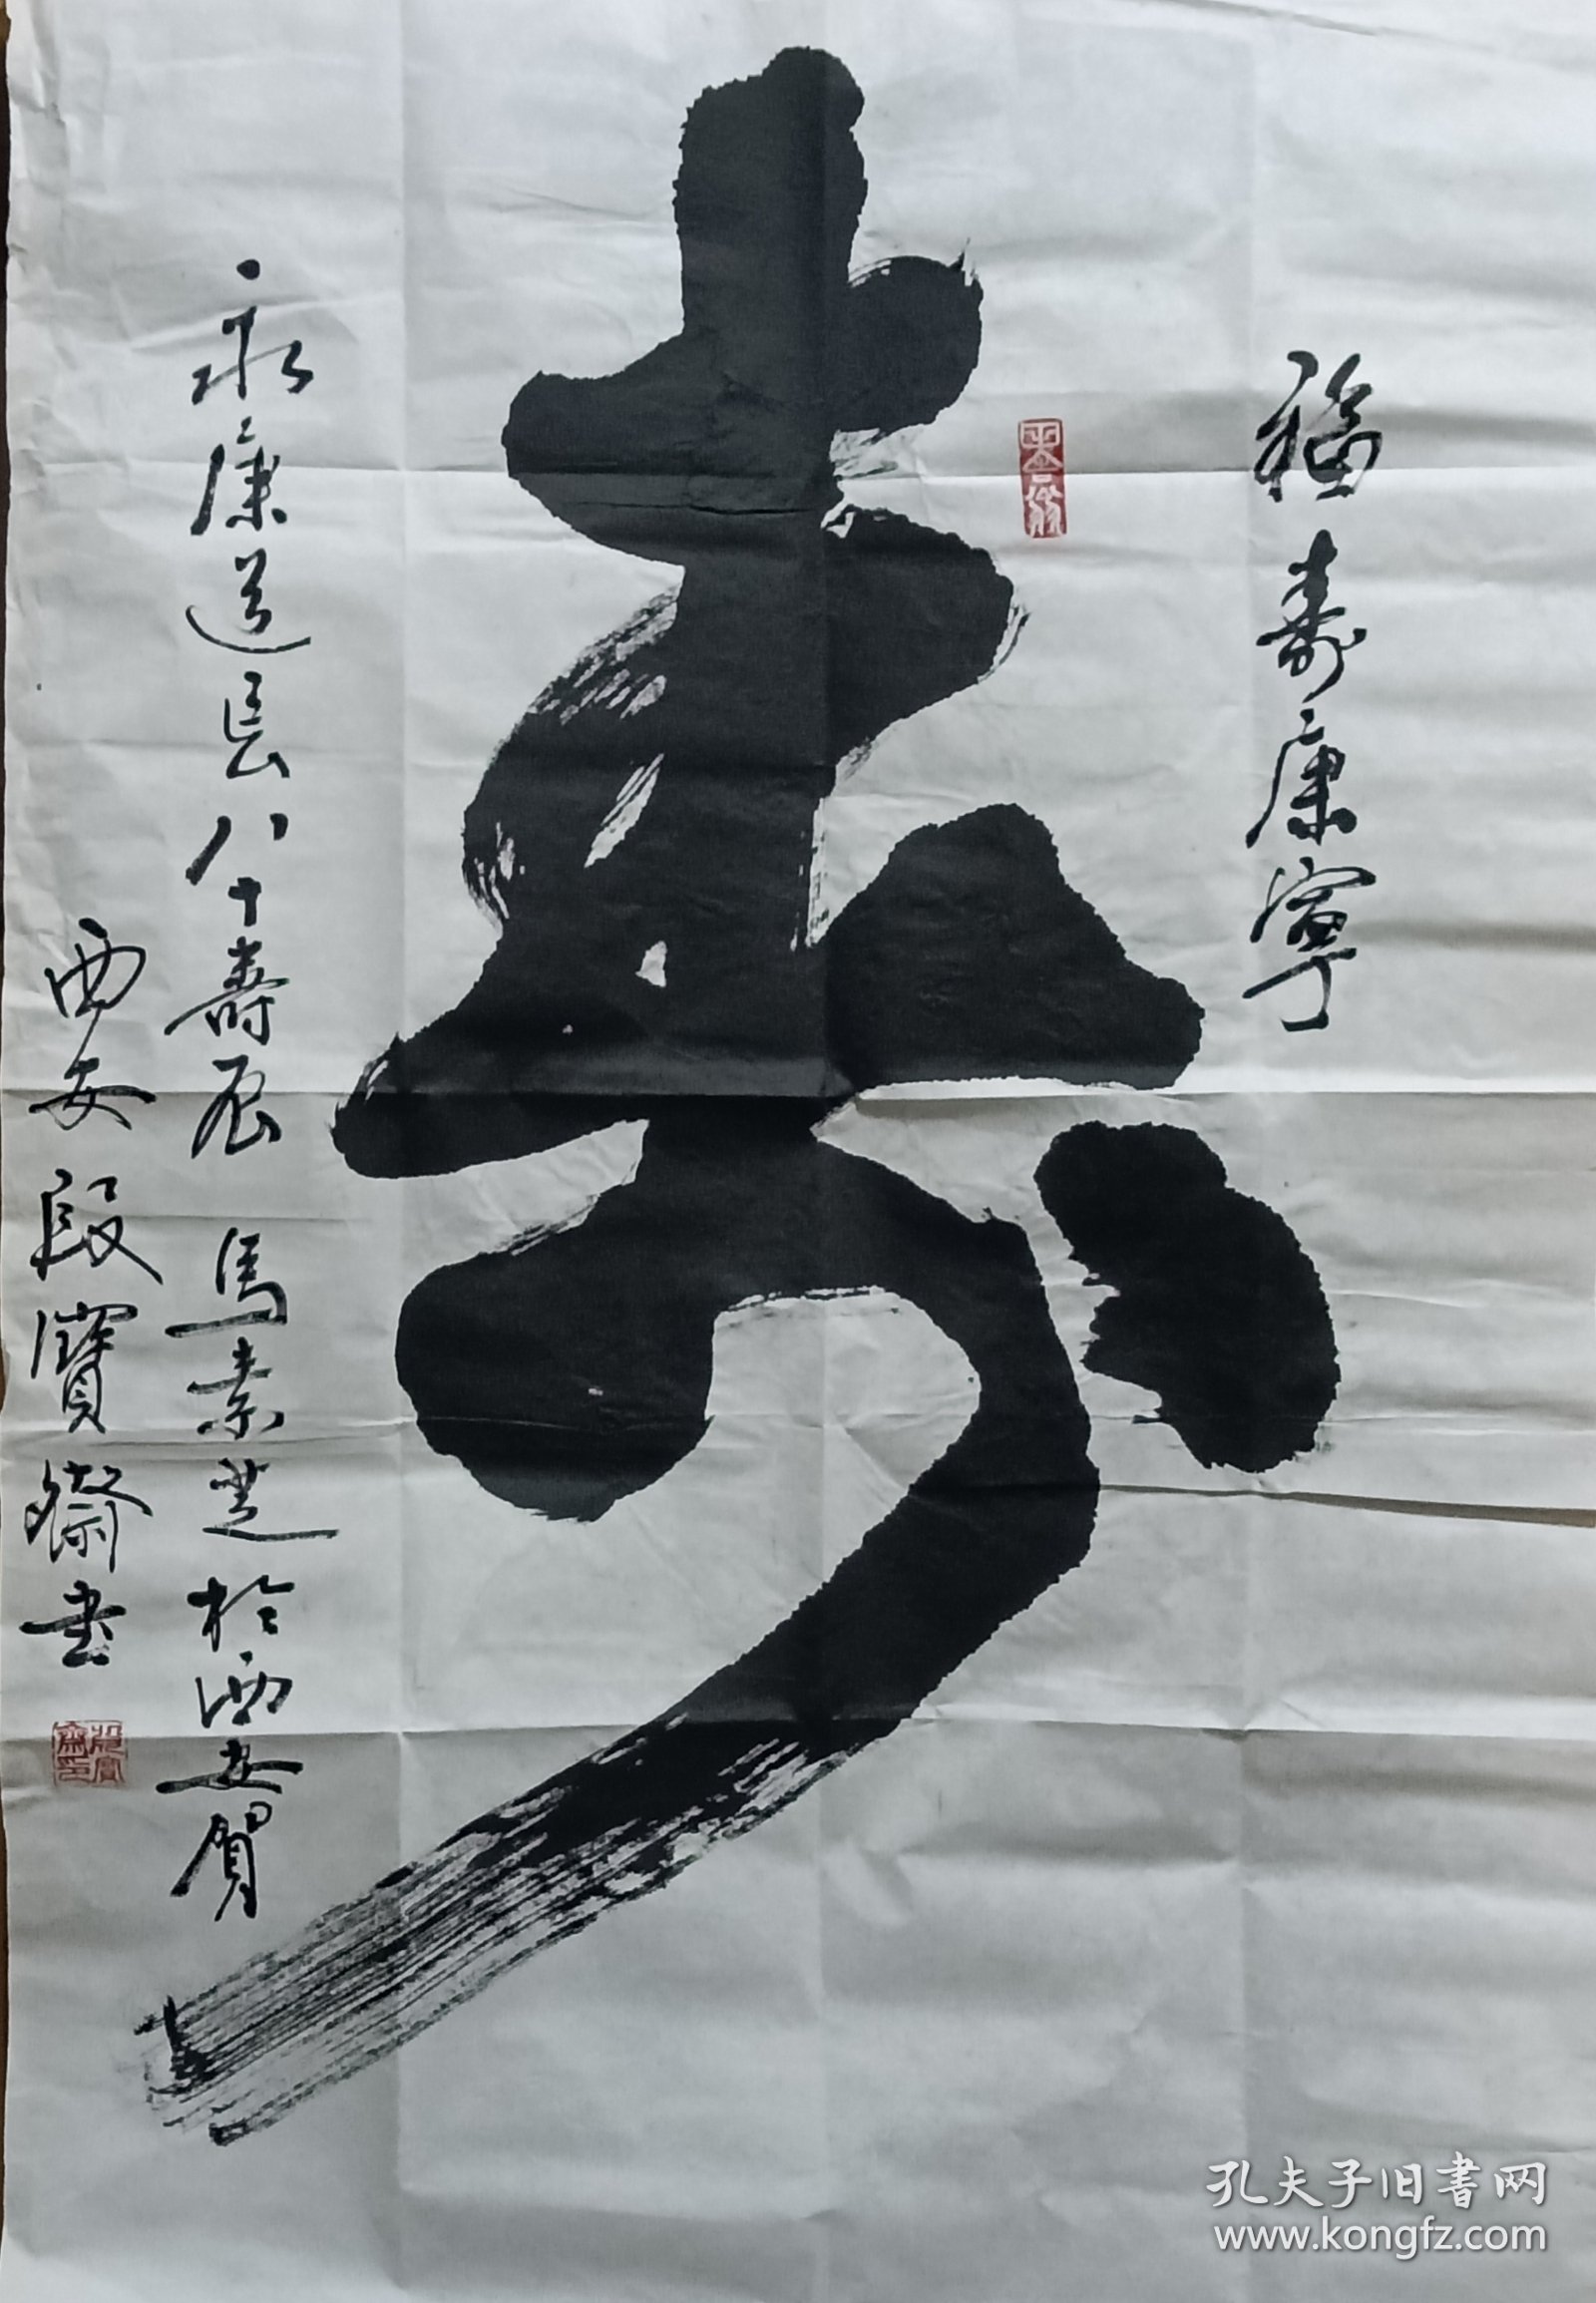 福壽康寧
壽
永康道長八十壽辰 馬素芝於西安賀
西安段寶齋書
孔夫子旧書网
www.kongfz.com